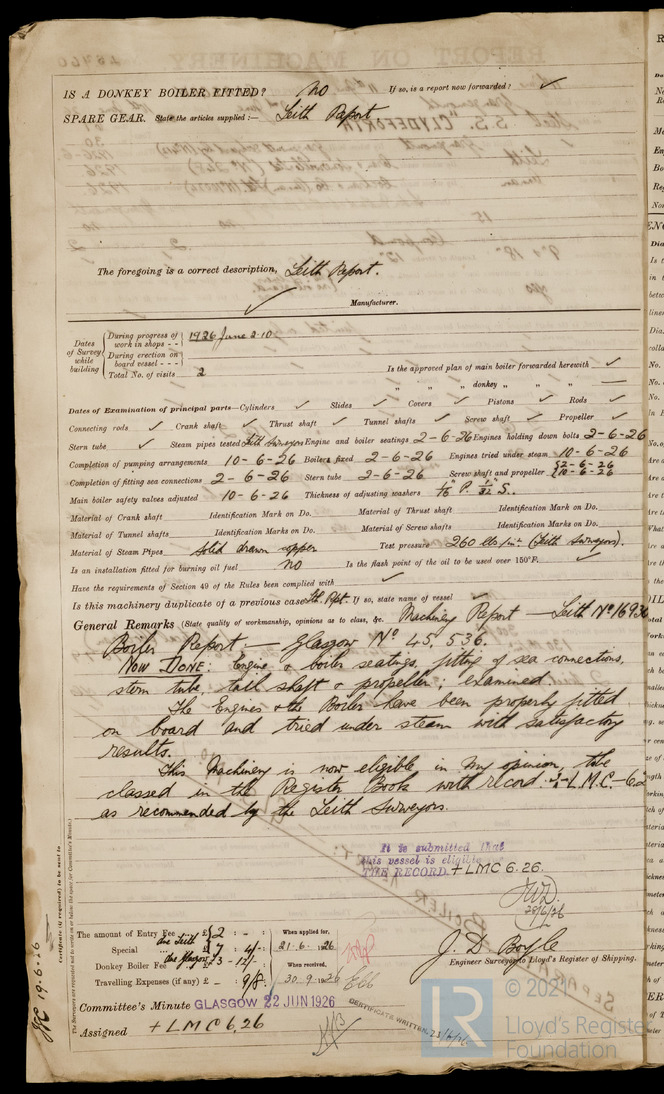 IS A DONKEY BOILER FITTED? no If so, is a report now forwarded? ✓
SPARE GEAR. State the articles supplied:— Leith Report
The foregoing is a correct description, Leith Report.
Manufacturer.
Dates of Survey while building
During progress of work in shops - - 1926 June 2-10
During erection on board vessel - - -
Total No. of visits 2
Is the approved plan of main boiler forwarded herewith ✓
" " " donkey " " " —
Dates of Examination of principal parts—Cylinders ✓ Slides ✓ Covers ✓ Pistons ✓ Rods ✓
Connecting rods ✓ Crank shaft ✓ Thrust shaft ✓ Tunnel shafts ✓ Screw shaft ✓ Propeller ✓
Stern tube ✓ Steam pipes tested Leith Surveyors Engine and boiler seatings 2-6-26 Engines holding down bolts 2-6-26
Completion of pumping arrangements 10-6-26 Boilers fixed 2-6-26 Engines tried under steam 10-6-26
Completion of fitting sea connections 2-6-26 Stern tube 2-6-26 Screw shaft and propeller 2-6-26 10-6-26
Main boiler safety valves adjusted 10-6-26 Thickness of adjusting washers P. S.
Material of Crank shaft Identification Mark on Do. Material of Thrust shaft Identification Mark on Do.
Material of Tunnel shafts Identification Marks on Do. Material of Screw shafts Identification Marks on Do.
Material of Steam Pipes solid drawn copper Test pressure 260 lbs/in² (Leith Surveyors).
Is an installation fitted for burning oil fuel no Is the flash point of the oil to be used over 150°F. ✓
Have the requirements of Section 49 of the Rules been complied with ✓
Is this machinery duplicate of a previous case Lth. Rpt. If so, state name of vessel ✓
General Remarks (State quality of workmanship, opinions as to class, &c. Machinery Report — Leith Nº 16930
Boiler Report — Glasgow Nº 45,536.
NOW DONE: Engine & boiler seatings, fitting of sea connections,
stern tube, tail shaft & propeller; examined
The Engines & the Boiler have been properly fitted
on board and tried under steam with satisfactory
results.
This Machinery is now eligible in my opinion, to be
classed in the Register Book with record L.M.C.-6.2
as recommended by the Leith Surveyors.
It is submitted that
this vessel is eligible
THE RECORD + LMC 6.26.
JWD.
28/6/26
The amount of Entry Fee £ 2 : - :
Special Leith 7 : 4/- :
Donkey Boiler Fee Glasgow £3 - 12/- :
Travelling Expenses (if any) £ - : 9/8 :
When applied for,
21.6.1926
When received,
30.9.1926
J. D. Boyle
Engineer Surveyor to Lloyd's Register of Shipping.
Committee's Minute GLASGOW 22 JUN 1926
Assigned + LMC 6,26
CERTIFICATE WRITTEN
Certificate (if required) to be sent to
The Surveyors are requested not to write on or below the space for Committee's Minute.
19-6-26
LR
© 2021
Lloyd's Register
Foundation